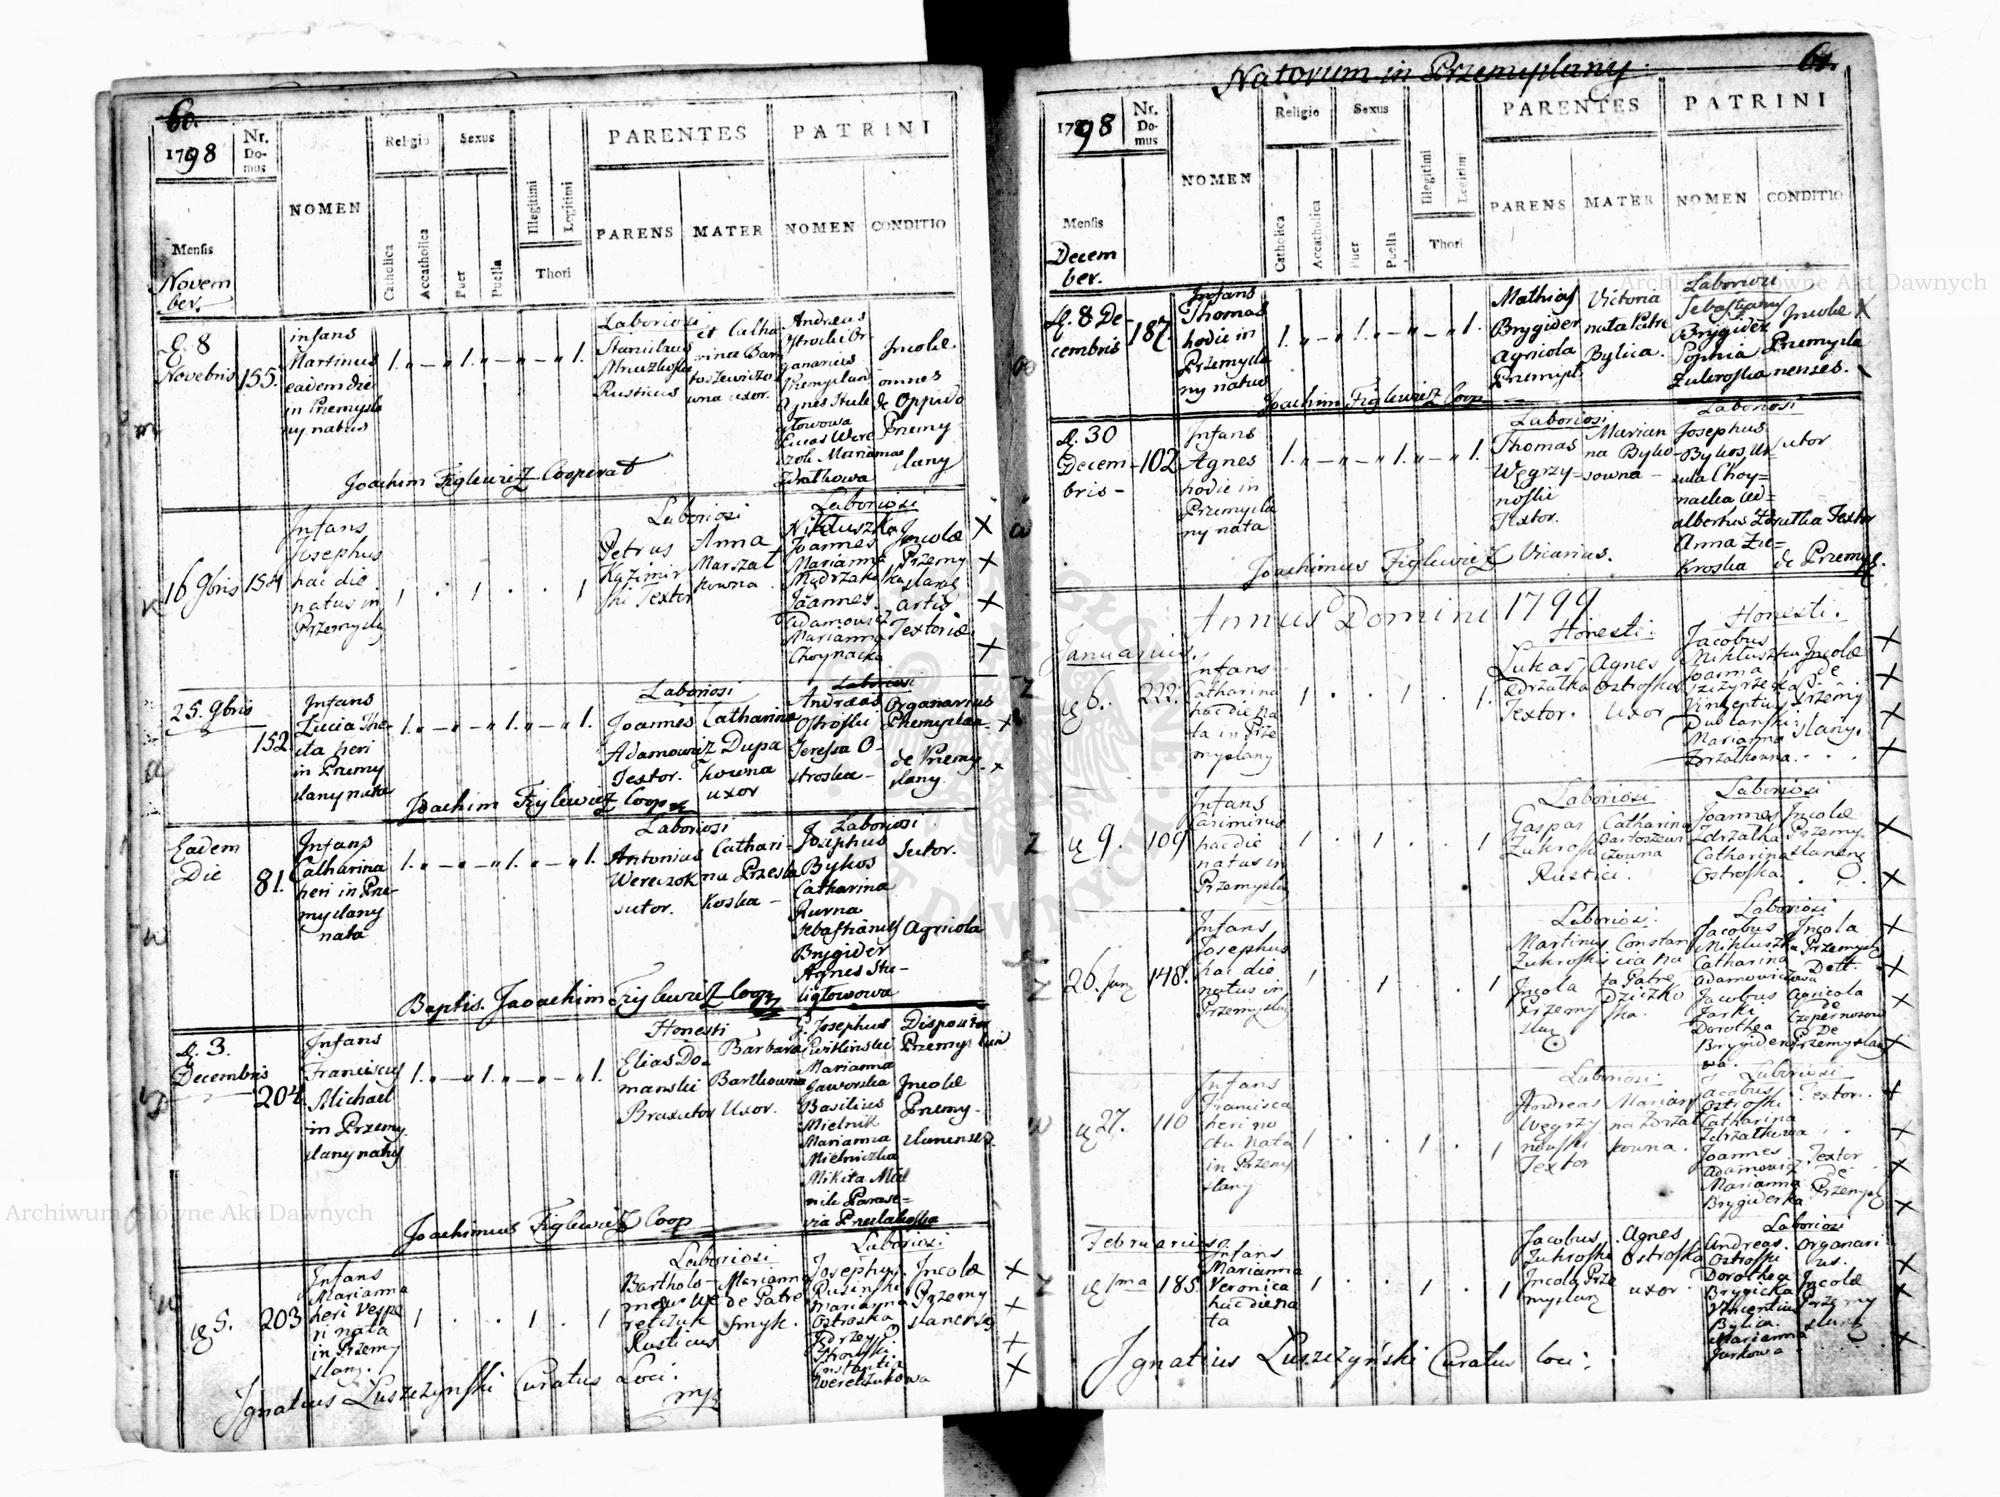 60.
1798
Nr. Do- mus
NOMEN
Religio
Sexus
PARENTES
PATRINI
Catholica
Accatholica
Puer
Puella
Illegitimi
Legitimi
Thori
PARENS
MATER
NOMEN
CONDITIO
Mensis
Novem
ber.
D. 8
Novebris
155.
infans
Martinus
eadem die
in Przemysla
ny natus
1. „ – „ 1. „ – „ – „ 1.
Laboriosi
Stanislaus
Rusticus
et Catha-
rina Bar
toszewiczo
wna uxor.
Andreas
Ostroski Or-
ganarius
Agnes Stule
głowowa
Lucas Were
szok Marianna
Incolae
omnes
de Oppido
Przemy
slany
Joachim Figlewicz Cooperat
16 9bris
154
Infans
Josephus
hac die
natus in
Przemyslany
1 . 1 . . 1
Laboriosi
Petrus
Kazimir
ski Textor
Anna
Marszał
kowna
Laboriosi
Mikłuszka
Joannes
Marianna
Mądrzakoska
Joannes
Adamowicz
Marianna
Choynacka
Incolae
Przemy
slany
artis
Textoriae
25. 9bris
152
Infans
Lucia
heri
in Przemy
slany nata
1. „ – „ – „ 1. „ – „ 1.
Laboriosi
Joannes
Adamowicz
Textor.
Catharina
Dupa
kowna
uxor
Laboriosi
Andreas
Ostroski
Teressa O-
stroska –
Organarius
Przemyslan
de Przemy
slany.
Joachim Figlewicz Coop
Eadem
Die
81.
Infans
Catharina
heri in Prze-
myslany
nata
1. „ – „ – „ 1. „ – „ 1.
Laboriosi
Antonius
Wereszok
sutor.
Cathari-
na Przesla
koska –
Laboriosi
Josephus
Bykos
Catharina
Kurna
Sebastianus
Brygider
Agnes Stu-
ligłowowa
Sutor.
Agricola
Baptis. Jaoachim Figlewicz Coop
D. 3.
Decembris
204
Infans
Franciscus
Michael
in Przemy
slany natus
1. „ – „ 1. „ – „ – „ 1.
Honesti
Elias Do-
manski
Braxator
Barbara
Bartkowna
Uxor.
G. Josephus
Kwitlinski
Marianna
Jaworska
Basilius
Mielnik
Marianna
Mielniczka
Mikita Miel
nik Parase-
via Przeslakoska
Dispositor
Incolae
Przemy-
slanenses.
Joachimus Figlewicz Coop
5.
203
Infans
Marianna
heri vespe
ri nata
in Przemy
slany.
1 . . 1 . 1
Laboriosi
Bartholo-
meus We
relczuk
Rusticus
Marianna
de Patre
Smyk.
Laboriosi
Josephus
Rusinski
Marianna
Ostroska
Jedrzey
Ostroski
Constantia
Werelczukowa
Incolae
Przemy
slanenses
Ignatius Łuszczynski Curatus Loci.
mp
Natorum in Przemyslany
61.
1798
Nr. Do- mus
NOMEN
Religio
Sexus
PARENTES
PATRINI
Catholica
Accatholica
Puer
Puella
Illegitimi
Legitimi
Thori
PARENS
MATER
NOMEN
CONDITIO
Mensis
Decem
ber.
D. 8 De-
cembris
187.
Infans
Thomas
hodie in
Przemysla
ny natus
1. „ – „ 1. „ – „ – „ 1.
Mathias
Brygider
Agricola
Przemysl.
Victoria
nata Patre
Bylica.
Laboriosi
Sebastianus
Brygider
Sophia
Zukroska
Incolae
Przemysla
nenses.
Joachim Figlewicz Coop
D. 30
Decem-
bris –
102
Infans
Agnes
hodie in
Przemysla
ny nata
1. „ – „ – „ 1. „ – „ 1.
Laboriosi
Thomas
Węgrzy-
noski
Textor.
Marian
na Byko-
sowna –
Laboriosi
Josephus
Bykos, Ur
sula Choy=
nacka Ad=
albertus Zdrałka Textor
Anna Zu=
kroska
sutor
de Przemysl.
Joachimus Figlewicz Vicarius.
Annus Domini 1799
Januarius.
6.
222.
Infans
Catharina
hac die na
ta in Prze
myslany
1 . . 1 . 1
Honesti.
Lukas
Zdrzałka
Textor.
Agnes
Ostroska
Uxor
Honesti.
Jacobus
Mikłuszka
Joanna
Vincentius
Dublanski
Marianna
Zdrzałkowna.
Incolae
de
Przemy
slany.
9.
109
Infans
Casimirus
hac die
natus in
Przemyslany
1 . 1 . . 1
Laboriosi
Gaspar
Zukroski
Rustici.
Catharina
Bartoszewi
czowna
Laboriosi
Joannes
Zdrzałka
Catharina
Ostroska.
Incolae
Przemy.
slanens
26. Jan
148.
Infans
Josephus
hac die
natus in
Przemyslany
1 . 1 . . 1
Laboriosi.
Martinus
Zukroski
Incola
Przemy
slany
Constan
cia na
ta Patre
Dziczko
ska.
Laboriosi
Jacobus
Mikłuszka
Catharina
Adamowiczowa
Jacobus
Jarki
Dorothea
Brygidero
wa.
Incola
Przemysla
Dett.
Agricola
de
De
Przemyslany
27.
110
Infans
Francisca
heri no
ctu nata
in Przemy
slany
1 . . 1 . 1
Laboriosi.
Andreas
Węgrzy
nowski
Textor
Marian
na Zdrzał
kowna.
Laboriosi
Jacobus
Ostroski
Catharina
Zdrzałkowa
Joannes
Adamowicz
Marianna
Brygiderka
Textor.
Textor
de
Przemysl
Februarius.
1ma
185.
Infans
Marianna
Veronica
hac die na
ta
1 . . 1 . 1
Jacobus
Zukroski
Incola Prze
myslany
Agnes
Ostroska
uxor
Laboriosi
Andreas.
Ostroski
Dorothea
Brygicka
Vincentius
Bylica.
Marianna
Jurkowa
Organari
us.
Incolae
Przemy
slany
Ignatius Łuszczyński Curatus loci.
Archiwum Główne Akt Dawnych
Archiwum Główne Akt Dawnych